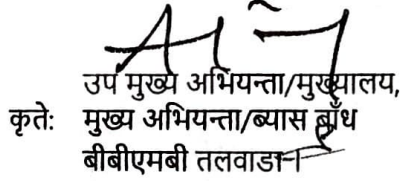 उप मुख्य अभियन्ता/मुख्यालय,
कृते: मुख्य अभियन्ता/ब्यास बाँध
बीबीएमबी तलवाडा।